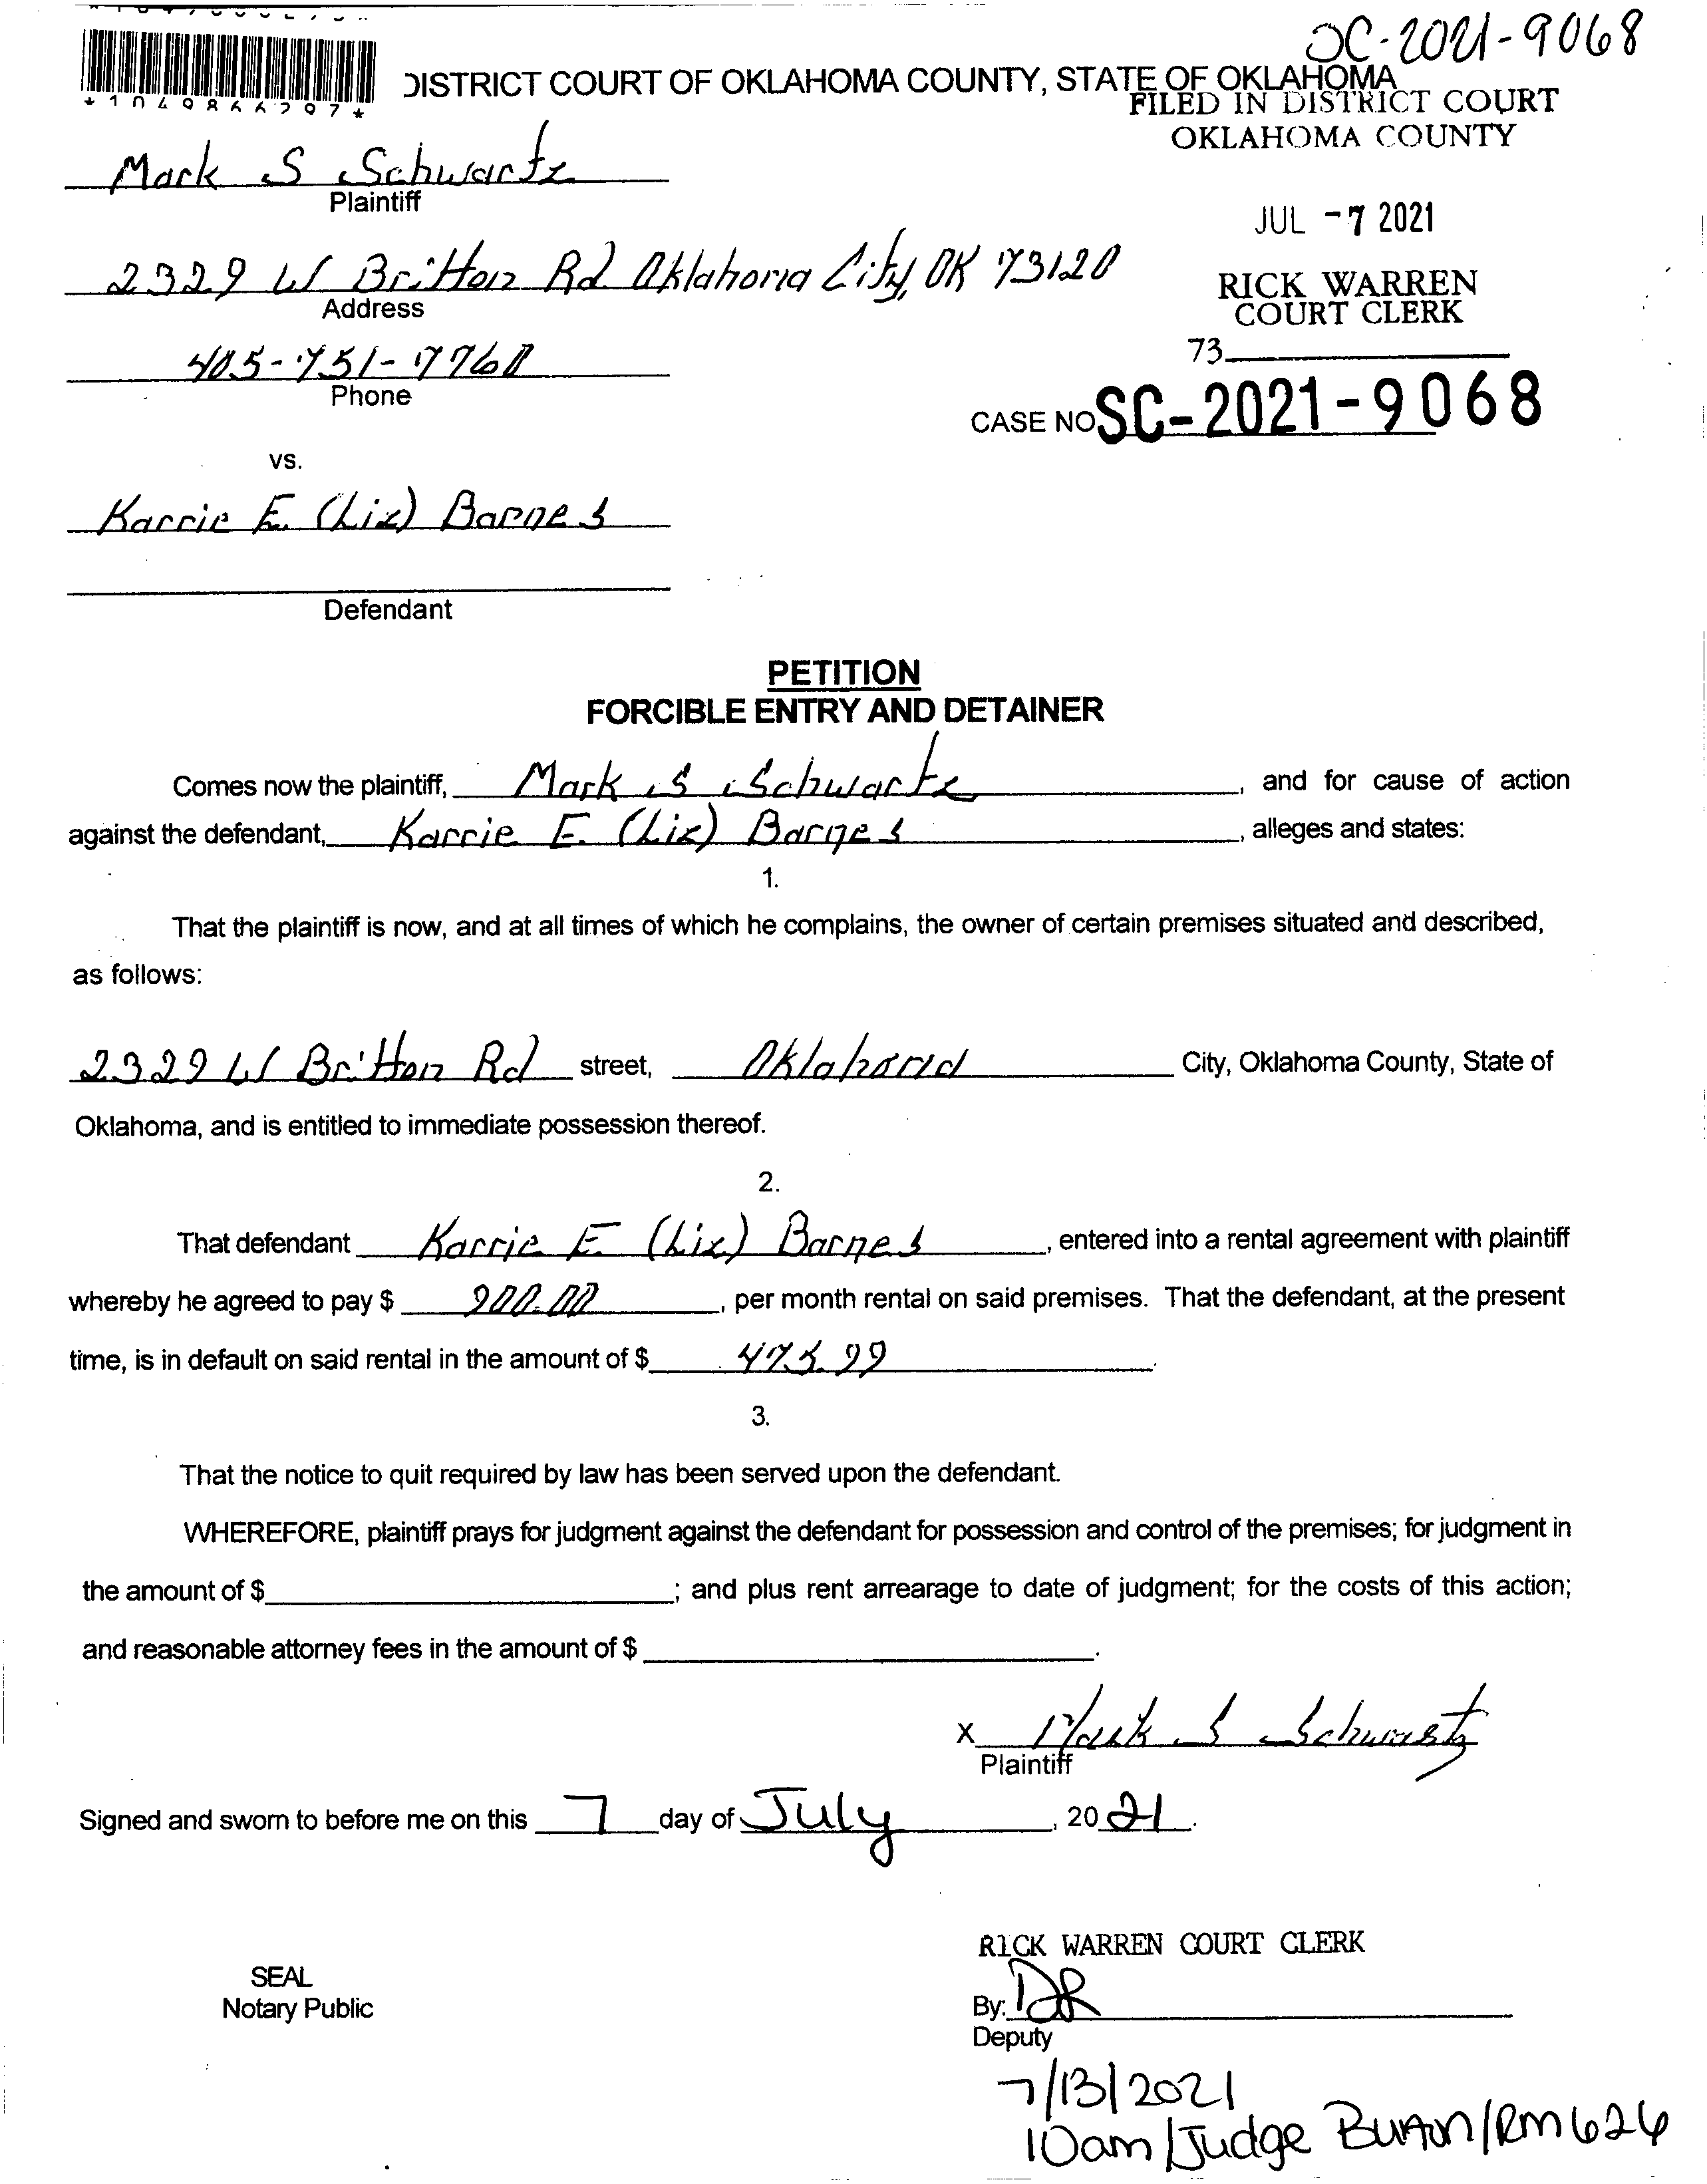 SC-2021-9068
DISTRICT COURT OF OKLAHOMA COUNTY, STATE OF OKLAHOMA
FILED IN DISTRICT COURT
OKLAHOMA COUNTY
Mark S Schwartz
Plaintiff
JUL -7 2021
2329 W Britton Rd Oklahoma City, OK 73120
Address
RICK WARREN
COURT CLERK
405-751-7760
Phone
73
CASE NO SC-2021-9068
vs.
Karrie E. (Liz) Barnes
Defendant
PETITION
FORCIBLE ENTRY AND DETAINER
Comes now the plaintiff, Mark S Schwartz, and for cause of action
against the defendant, Karrie E. (Liz) Barnes, alleges and states:
1.
That the plaintiff is now, and at all times of which he complains, the owner of certain premises situated and described,
as follows:
2329 W Britton Rd street, Oklahoma City, Oklahoma County, State of
Oklahoma, and is entitled to immediate possession thereof.
2.
That defendant Karrie E (Liz) Barnes, entered into a rental agreement with plaintiff
whereby he agreed to pay $ 900.00, per month rental on said premises. That the defendant, at the present
time, is in default on said rental in the amount of $ 475.99.
3.
That the notice to quit required by law has been served upon the defendant.
WHEREFORE, plaintiff prays for judgment against the defendant for possession and control of the premises; for judgment in
the amount of $ ; and plus rent arrearage to date of judgment; for the costs of this action;
and reasonable attorney fees in the amount of $ .
X Mark S Schwartz
Plaintiff
Signed and sworn to before me on this 7 day of July, 20 21.
RICK WARREN COURT CLERK
SEAL
Notary Public
By: DR
Deputy
7/13/2021
10am/Judge Burton/RM 626